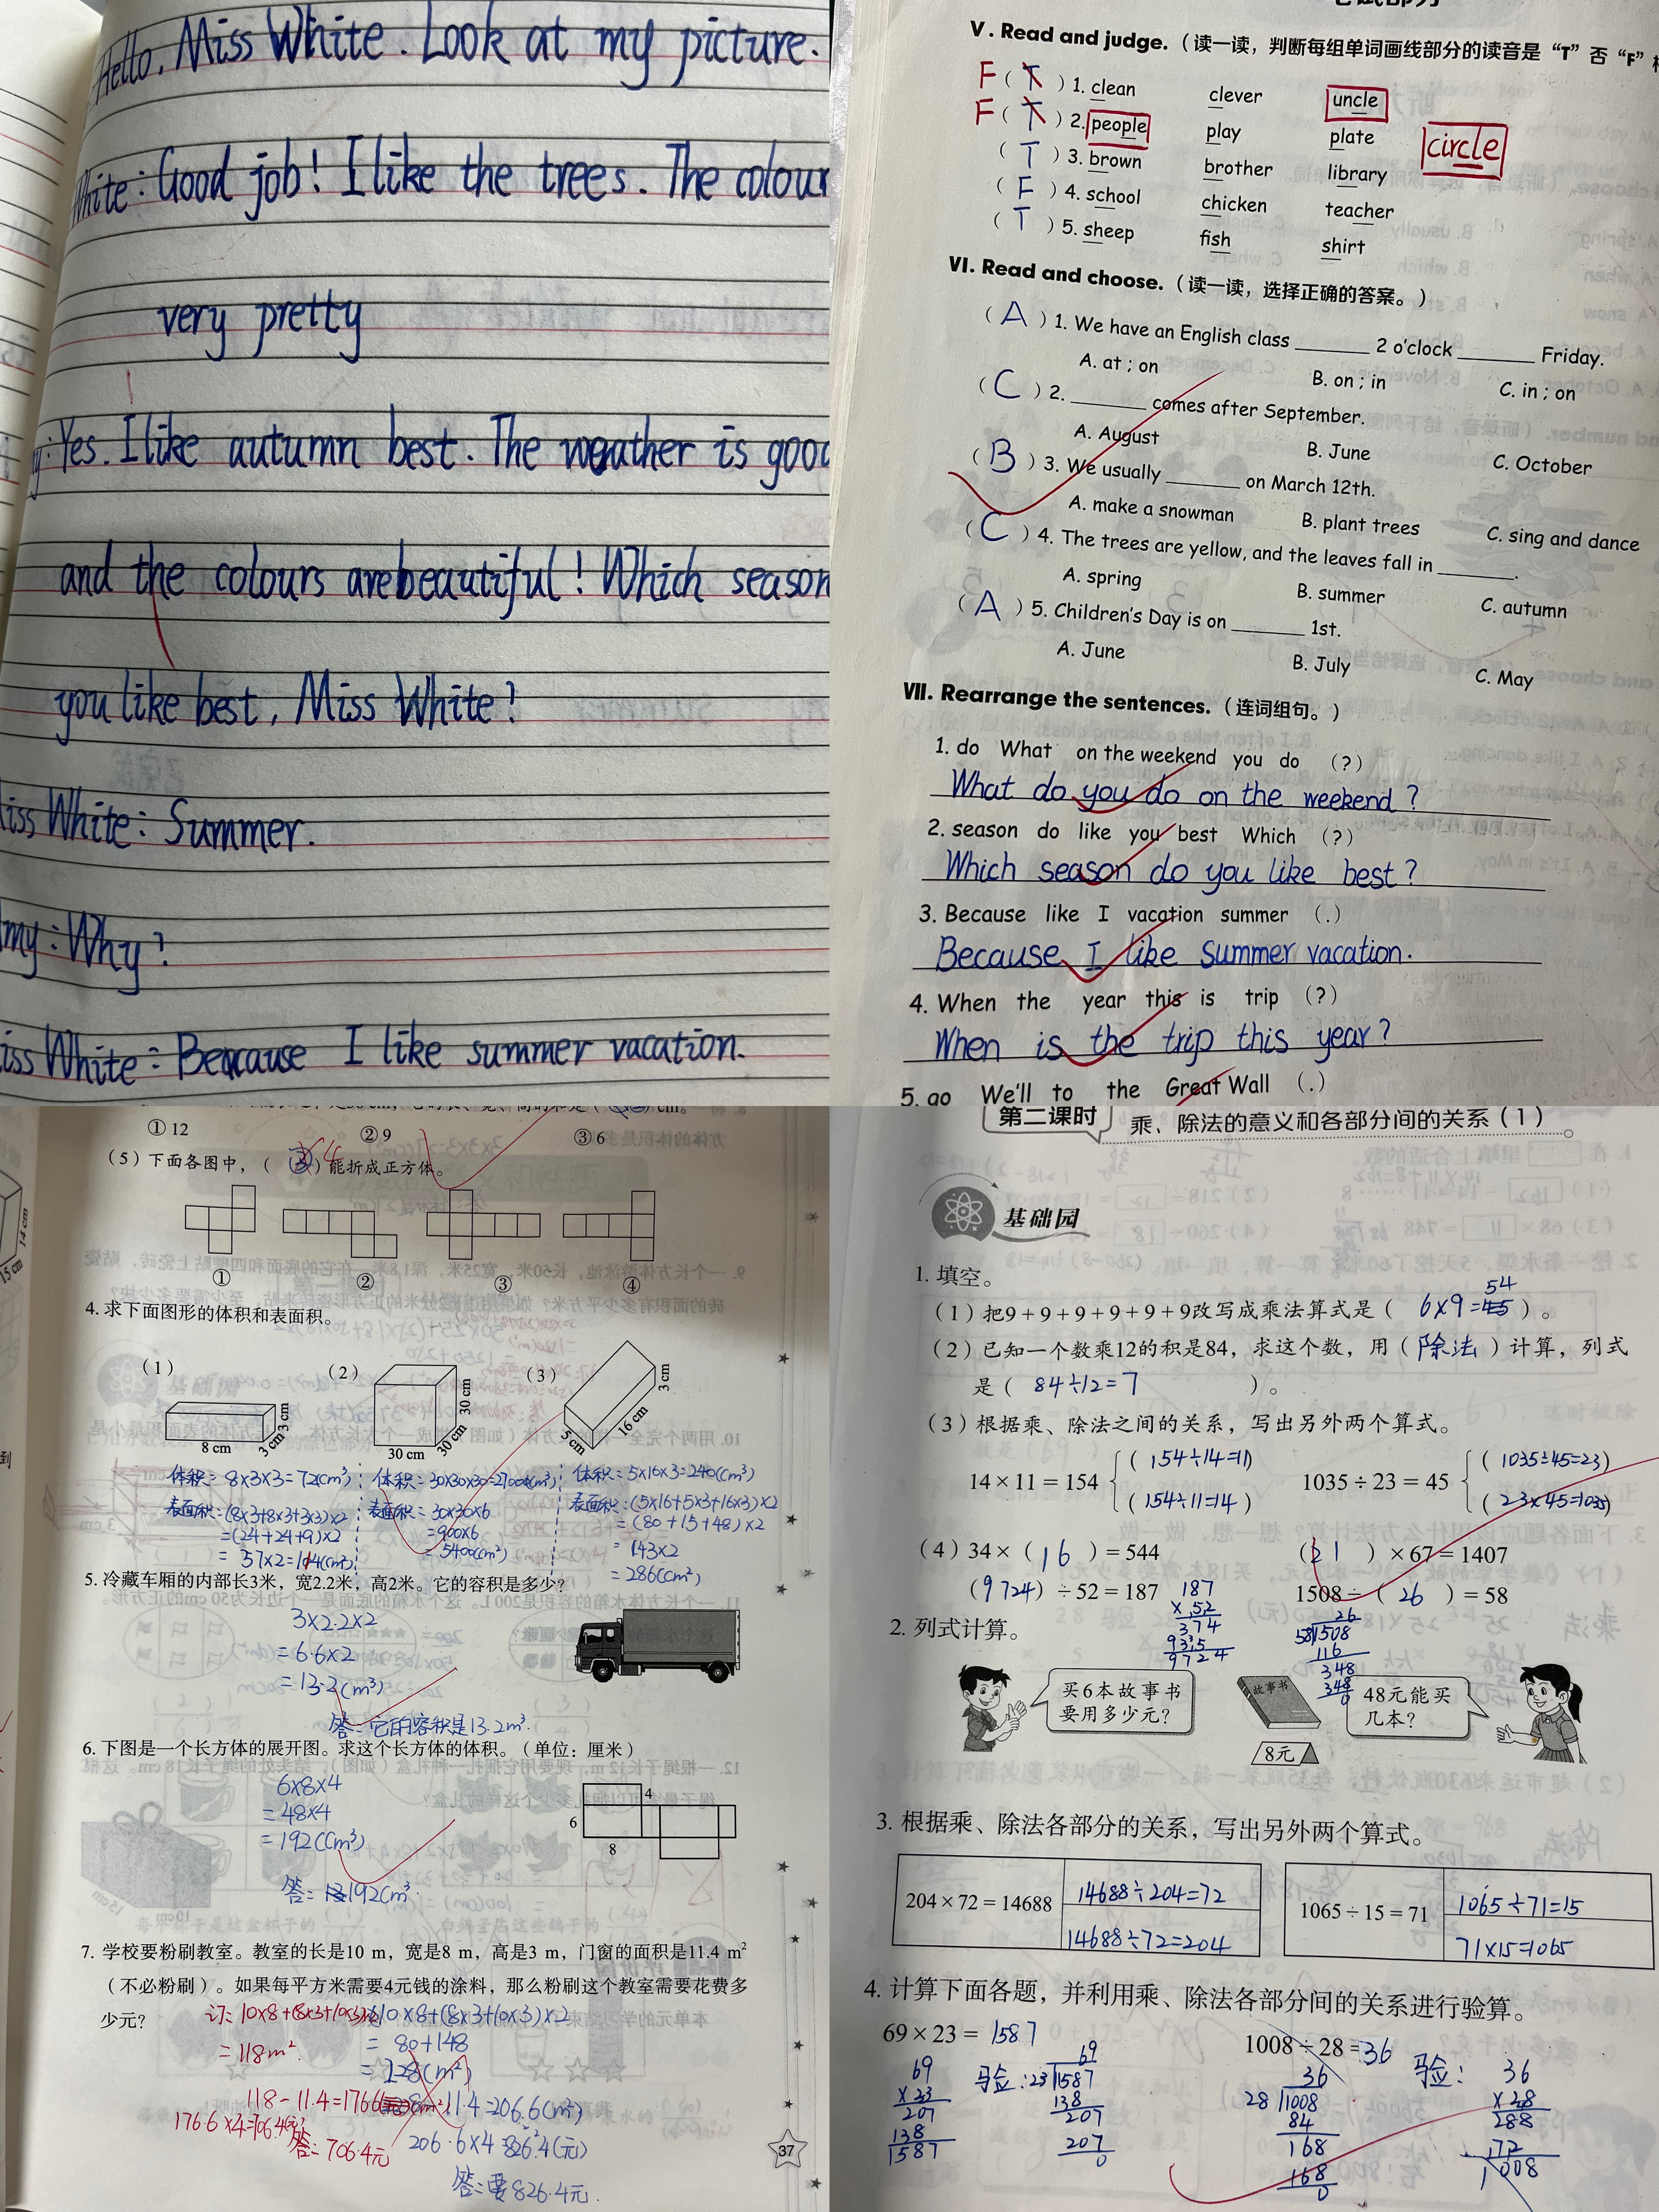 Hello, Miss White. Look at my picture.
White: Good job! I like the trees. The colour
very pretty
Yes. I like autumn best. The weather is good
and the colours are beautiful! Which season
you like best, Miss White?
iss White: Summer.
my: Why?
iss White: Because I like summer vacation.
V. Read and judge. (读一读，判断每组单词画线部分的读音是“T”否“F”相
F ( T ) 1. clean clever uncle
F ( T ) 2. people play plate
circle
( T ) 3. brown brother library
( F ) 4. school chicken teacher
( T ) 5. sheep fish shirt
VI. Read and choose. (读一读，选择正确的答案。)
( A ) 1. We have an English class ______ 2 o'clock ______ Friday.
A. at ; on B. on ; in C. in ; on
( C ) 2. ______ comes after September.
A. August B. June C. October
( B ) 3. We usually ______ on March 12th.
A. make a snowman B. plant trees C. sing and dance
( C ) 4. The trees are yellow, and the leaves fall in ______.
A. spring B. summer C. autumn
( A ) 5. Children's Day is on ______ 1st.
A. June B. July C. May
VII. Rearrange the sentences. (连词组句。)
1. do What on the weekend you do (?)
What do you do on the weekend?
2. season do like you best Which (?)
Which season do you like best?
3. Because like I vacation summer (.)
Because I like summer vacation.
4. When the year this is trip (?)
When is the trip this year?
5. go We'll to the Great Wall (.)
① 12 ② 9 ③ 6
(5) 下面各图中，( ) 能折成正方体。
① ② ③ ④
4. 求下面图形的体积和表面积。
(1) (2) (3)
8 cm 3 cm 3 cm 30 cm 30 cm 30 cm 5 cm 16 cm 3 cm
体积：8×3×3=72(cm³) 体积：30×30×30=27000(cm³) 体积：5×16×3=240(cm³)
表面积：(8×3+8×3+3×3)×2 表面积：30×30×6 表面积：(5×16+5×3+16×3)×2
=(24+24+9)×2 =900×6 =(80+15+48)×2
=57×2=114(cm²) =5400(cm²) =143×2
=286(cm²)
5. 冷藏车厢的内部长3米，宽2.2米，高2米。它的容积是多少？
3×2.2×2
=6.6×2
=13.2(m³)
答：它的容积是13.2m³.
6. 下图是一个长方体的展开图。求这个长方体的体积。(单位：厘米)
6×8×4
=48×4
=192(cm³)
答：192cm³.
4
6
8
7. 学校要粉刷教室。教室的长是10 m，宽是8 m，高是3 m，门窗的面积是11.4 m²
(不必粉刷)。如果每平方米需要4元钱的涂料，那么粉刷这个教室需要花费多
少元？
订：10×8+(8×3+10×3)×2
=118m².
118-11.4=176.6
176.6×4=706.4元
答：706.4元
10×8+(8×3+10×3)×2
=80+148
=228(m²)
11.4=206.6(m²)
206.6×4=826.4(元)
答：要826.4元.
37
第二课时 乘、除法的意义和各部分间的关系(1)
基础园
1. 填空。
(1) 把9+9+9+9+9+9改写成乘法算式是( 6×9=54 )。
(2) 已知一个数乘12的积是84，求这个数，用( 除法 )计算，列式
是( 84÷12=7 )。
(3) 根据乘、除法之间的关系，写出另外两个算式。
14×11=154 (154÷14=11) 1035÷23=45 (1035÷45=23)
(154÷11=14) (23×45=1035)
(4) 34×( 16 )=544 ( 21 )×67=1407
( 9724 )÷52=187 1508÷( 26 )=58
187
×52
374
935
9724
26
58 1508
116
348
348
0
2. 列式计算。
买6本故事书
要用多少元？
故事书
8元
48元能买
几本？
3. 根据乘、除法各部分的关系，写出另外两个算式。
204×72=14688 14688÷204=72
14688÷72=204
1065÷15=71 1065÷71=15
71×15=1065
4. 计算下面各题，并利用乘、除法各部分间的关系进行验算。
69×23=1587 1008÷28=36
69
×23
207
138
1587
验：
69
23 1587
138
207
207
0
36
28 1008
84
168
168
0
验：
36
×28
288
72
1008